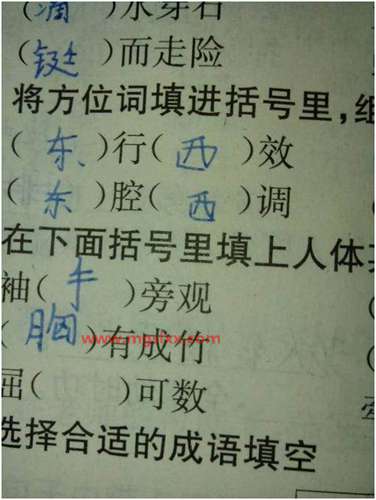 (滴)水穿石
(铤)而走险
将方位词填进括号里,组
(东)行(西)效
(东)腔(西)调
在下面括号里填上人体
袖(手)旁观
(胸)有成竹
www.mgzxzx.com
屈( )可数
选择合适的成语填空